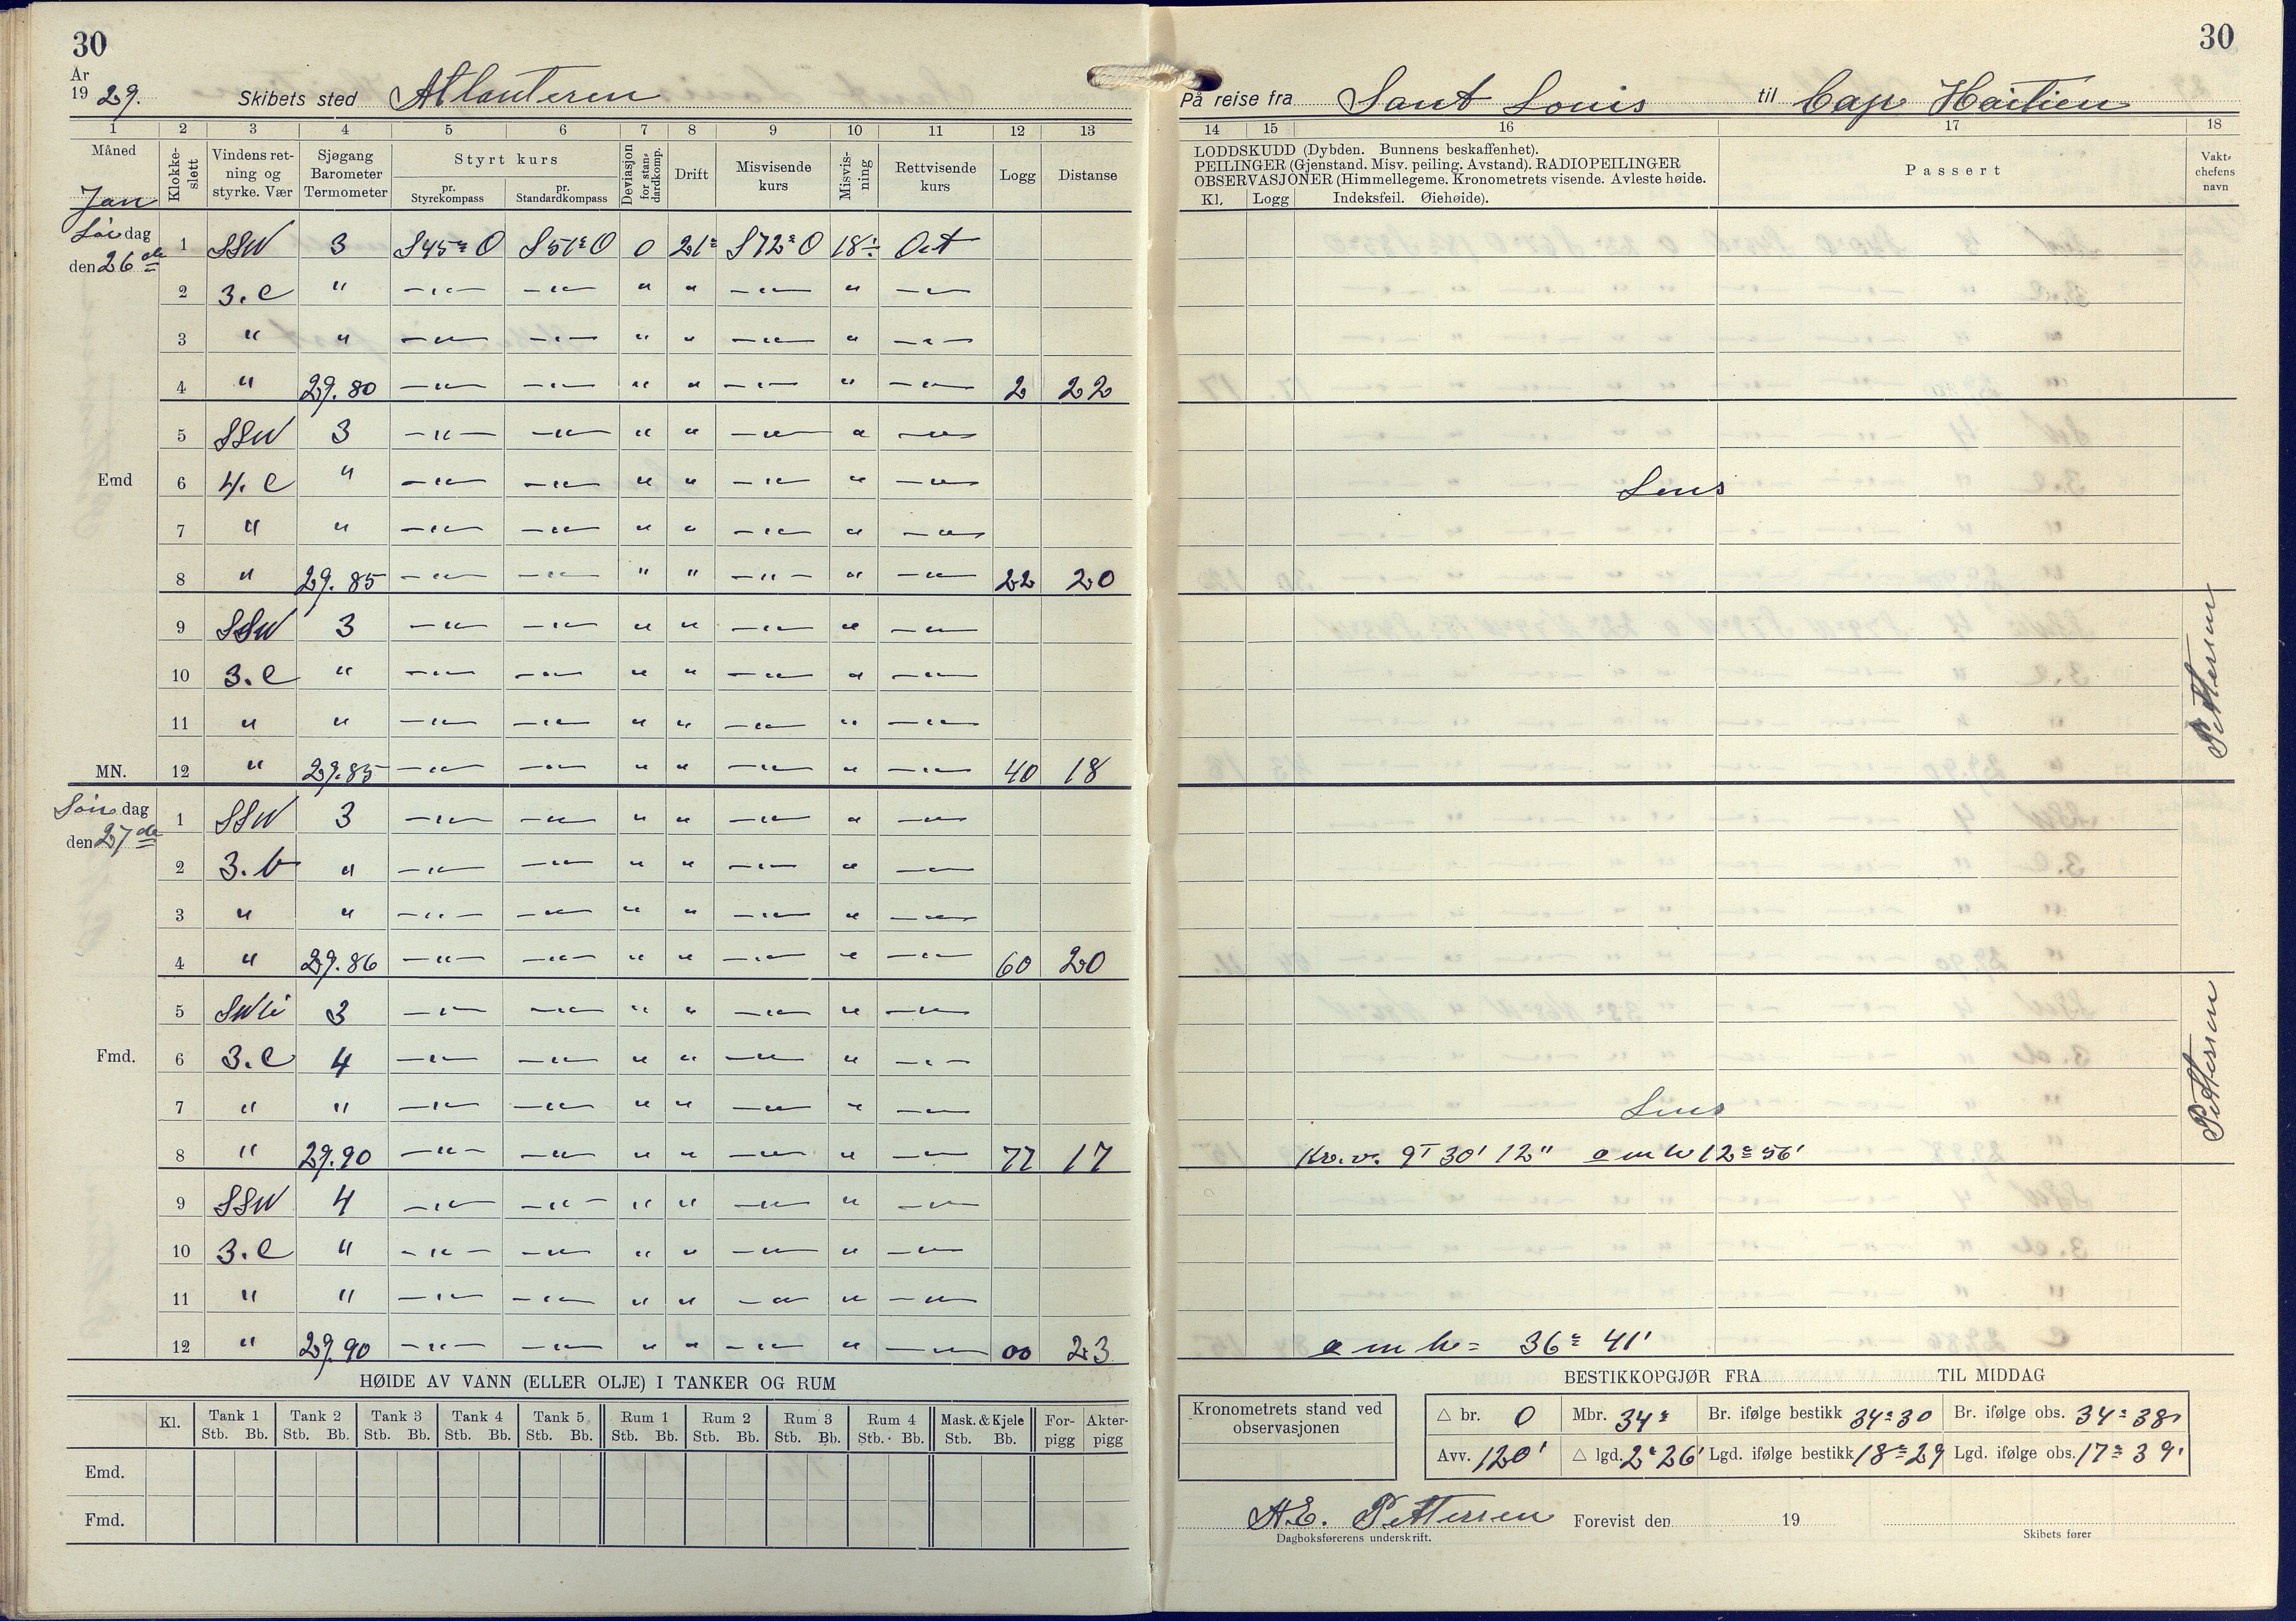 30
År
19 29. Skibets sted Atlanteren
1 2 3 4 5 6 7 8 9 10 11 12 13
Måned Jan
Klokkeslett
Vindens retning og styrke. Vær
Sjøgang Barometer Termometer
Styrt kurs
pr. Styrekompass
pr. Standardkompass
Deviasjon for standardkomp.
Drift
Misvisende kurs
Misvisning
Rettvisende kurs
Logg
Distanse
Lör dag den 26 de
1 SSW 3 S45° O S51° O 0 21° S72° O 18° Ost
2 3. c " —"— —"— " " —"— " —"—
3 " " —"— —"— " " —"— " —"—
4 " 29.80 —"— —"— " " —"— " —"— 2 22
5 SSW 3 —"— —"— " " —"— " —"—
Emd 6 4. c " —"— —"— " " —"— " —"—
7 " " —"— —"— " " —"— " —"—
8 " 29.85 —"— —"— " " —"— " —"— 22 20
9 SSW 3 —"— —"— " " —"— " —"—
10 3. c " —"— —"— " " —"— " —"—
11 " " —"— —"— " " —"— " —"—
MN. 12 " 29.85 —"— —"— " " —"— " —"— 40 18
Sön dag den 27 de
1 SSW 3 —"— —"— " " —"— " —"—
2 3. b " —"— —"— " " —"— " —"—
3 " " —"— —"— " " —"— " —"—
4 " 29.86 —"— —"— " " —"— " —"— 60 20
5 3 —"— —"— " " —"— " —"—
Fmd. 6 3. c 4 —"— —"— " " —"— " —"—
7 " " —"— —"— " " —"— " —"—
8 " 29.90 —"— —"— " " —"— " —"— 77 17
9 SSW 4 —"— —"— " " —"— " —"—
10 3. c " —"— —"— " " —"— " —"—
11 " " —"— —"— " " —"— " —"—
12 " 29.90 —"— —"— " " —"— " —"— 00 23
HØIDE AV VANN (ELLER OLJE) I TANKER OG RUM
Kl. Tank 1 Tank 2 Tank 3 Tank 4 Tank 5 Rum 1 Rum 2 Rum 3 Rum 4 Mask. & Kjele Forpigg Akterpigg
Stb. Bb. Stb. Bb. Stb. Bb. Stb. Bb. Stb. Bb. Stb. Bb. Stb. Bb. Stb. Bb. Stb. Bb. Stb. Bb.
Emd.
Fmd.
30
På reise fra Sant Louis til Cap Haitien
14 15 16 17 18
LODDSKUDD (Dybden. Bunnens beskaffenhet).
PEILINGER (Gjenstand. Misv. peiling. Avstand). RADIOPEILINGER
OBSERVASJONER (Himmellegeme. Kronometrets visende. Avleste høide.
Kl. Logg Indeksfeil. Øiehøide).
Passert
Vaktchefens navn
Lens
Pettersen
Pettersen
Lens
Kr.v. 9T 30' 12" o m h 12° 56'
o m h = 36° 41'
BESTIKKOPGJØR FRA TIL MIDDAG
Kronometrets stand ved observasjonen
△ br. 0 Mbr. 34° Br. ifølge bestikk 34° 30 Br. ifølge obs. 34° 38'
Avv. 120' △ lgd. 2° 26' Lgd. ifølge bestikk 18° 29 Lgd. ifølge obs. 17° 39'
H.E. Pettersen Forevist den 19
Dagboksførerens underskrift. Skibets fører